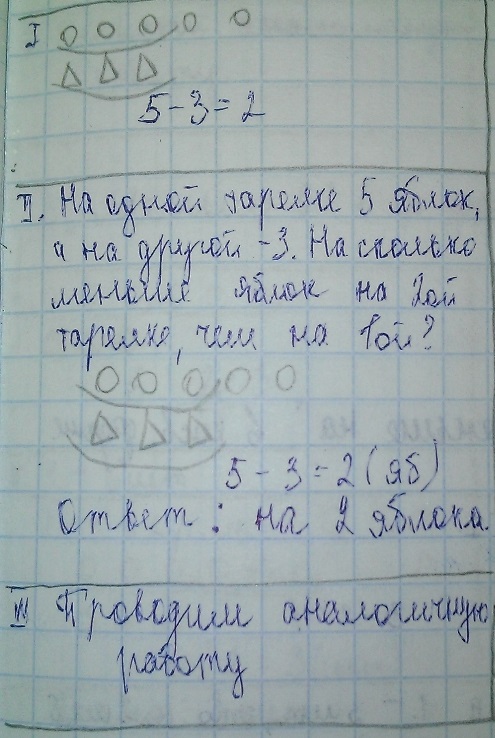 I
5-3=2
II. На одной тарелке 5 яблок,
а на другой -3. На сколько
меньше яблок на 2ой
тарелке, чем на 1ой?
5-3=2(яб)
Ответ: на 2 яблока
III Проводим аналогичную
работу